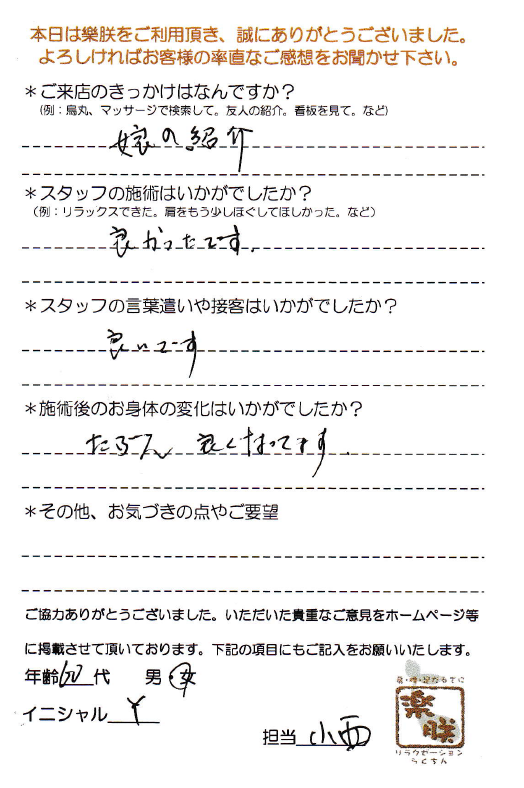 本日は樂朕をご利用頂き、誠にありがとうございました。
よろしければお客様の率直なご感想をお聞かせ下さい。
＊ご来店のきっかけはなんですか？
（例：烏丸、マッサージで検索して。友人の紹介。看板を見て。など）
娘の紹介
＊スタッフの施術はいかがでしたか？
（例：リラックスできた。肩をもう少しほぐしてほしかった。など）
良かったです。
＊スタッフの言葉遣いや接客はいかがでしたか？
良いです
＊施術後のお身体の変化はいかがでしたか？
たぶん 良くなってます。
＊その他、お気づきの点やご要望
ご協力ありがとうございました。いただいた貴重なご意見をホームページ等
に掲載させて頂いております。下記の項目にもご記入をお願いいたします。
年齢 代 男・女
イニシャル Y
担当 小西
楽朕
リラクゼーション
らくちん